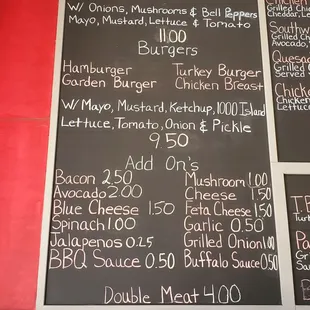 W/ Onions, Mushrooms & Bell Peppers
Mayo, Mustard, Lettuce & Tomato
11.00
Burgers
Hamburger Turkey Burger
Garden Burger Chicken Breast
W/ Mayo, Mustard, Ketchup, 1000 Island
Lettuce, Tomato, Onion & Pickle
9.50
Add On's
Bacon 2.50 Mushroom 1.00
Avocado 2.00 Cheese 1.50
Blue Cheese 1.50 Feta Cheese 1.50
Spinach 1.00 Garlic 0.50
Jalapenos 0.25 Grilled Onion 1.00
BBQ Sauce 0.50 Buffalo Sauce 0.50
Double Meat 4.00
Grilled
Cheddar, Le
Southw
Grilled Chi
Avocado,
Quesad
Grilled Chi
Served
Chick
Chicken
Lettuce